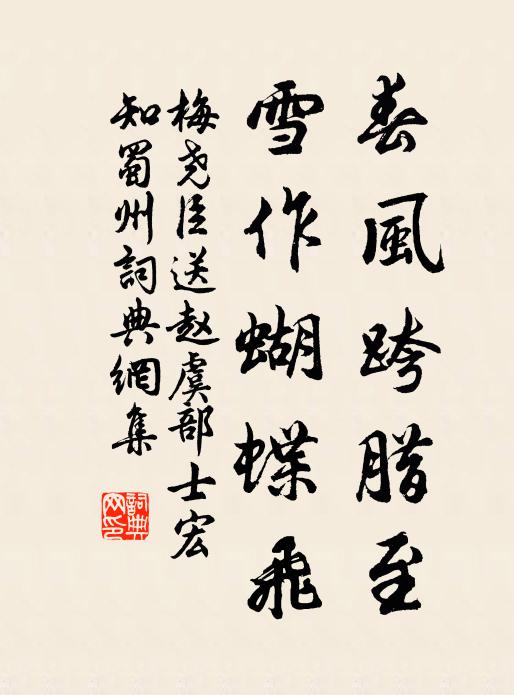 春風跨腊至
雪作蝴蝶飛
梅尧臣送赵虞部士宏
知蜀州詞典網集
詞典网印